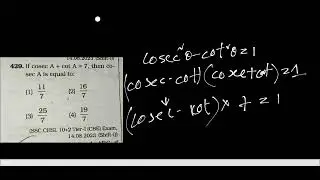 14.08.2023 (Shift-I)
429. If cosec A + cot A = 7, then co-
sec A is equal to:
(1) 11/7 (2) 16/7
(3) 25/7 (4) 19/7
(SSC CHSL 10+2 Tier-I (CBE) Exam,
14.08.2023 (Shift-I)
cosec²θ-cot²θ=1
(cosec-cot)(cosec+cot)=1
(cosec-cot)×7=1